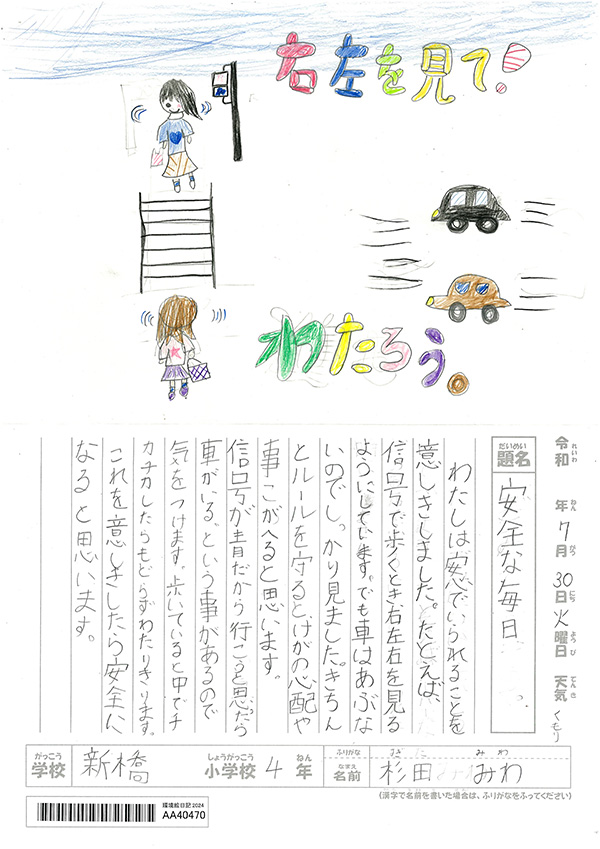 右左を見て!
わたろう。
令和 年7月30日火曜日 天気くもり
れいわ ねん がつ にち ようび てんき
だいめい
題名
安全な毎日
わたしは安心でいられることを
意しきしました。たとえば、
信口号で歩くとき右左右を見る
ようにしています。でも車はあぶな
いのでしっかり見ました。きちん
とルールを守るとけがの心配や
事こがへると思います。
信口号が青だから行こうと思ったら
車がいる。という事があるので
気をつけます。歩いていると中でチ
カチカしたらもどらずわたりきります。
これを意しきしたら安全に
なると思います。
がっこう
学校
新橋
しょうがっこう
小学校
4
ねん
年
ふりがな
なまえ
名前
すぎた みわ
杉田 みわ
(漢字で名前を書いた場合は、ふりがなをふってください)
環境絵日記2024
AA40470